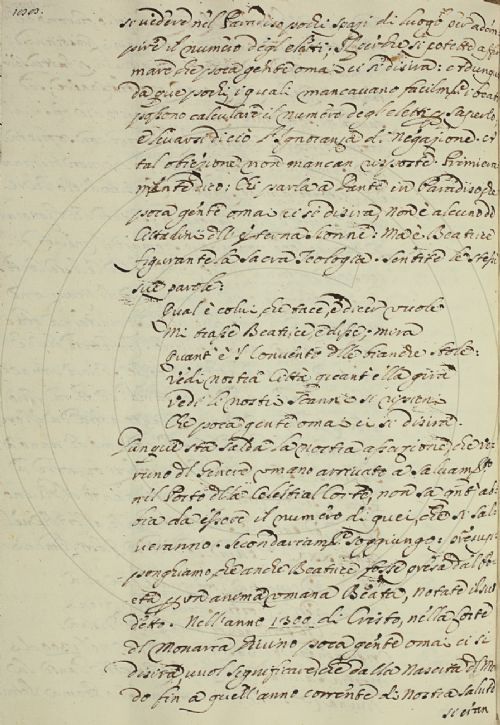 se vedere nel Paradiso pochi spazi di luogo per adem
pire il numero degl'eletti;
mare che poca gente omai ci si disira: e dunque
da que' pochi, i quali mancavano facilm.te i beati
posono calcular il numero degl'eletti, saperlo
e levarsi di ciò l'Ignoranza di Negazione. A
tal obiezione non mancan risposte. Primiera
mente dico: Chi parla a Dante in Paradiso, che
poca gente omai ci si disira, non è alcuno de
Cittadini dell'eterna Sionne: Ma è Beatrice
figurante la Sacra Teologia. Sentite le stesse
sue parole:
Qual è colui che tace, e dicer vuole
Mi trasse Beatrice e disse: mira
Quant'è 'l Convento delle bianche stole:
Vedi nostra Città quant'ella gira
Vedi li nostri scanni sì ripieni
Che poca gente omai ci si disira.
Dunque sta salda la nostra assazione, che ver
runo del Genere umano arrivato a salvam.to
nel Porto della Celestial Corte, non sa quant'ab
bia da essere il numero di quei, che si sal
veranno. Secondariam.te soggiungo: presup
ponghiamo che anche Beatrice fosse presa dal Po
eta per un'anima umana Beata, notate il suo
detto. Nell'anno 1300 di Cristo, nella Corte
del Monarca Divino poca gente omai ci si
disira, vuol significare, che dalla Nascita del Mo
do fin a quell'anno corrente di Nostra Salute
si eran